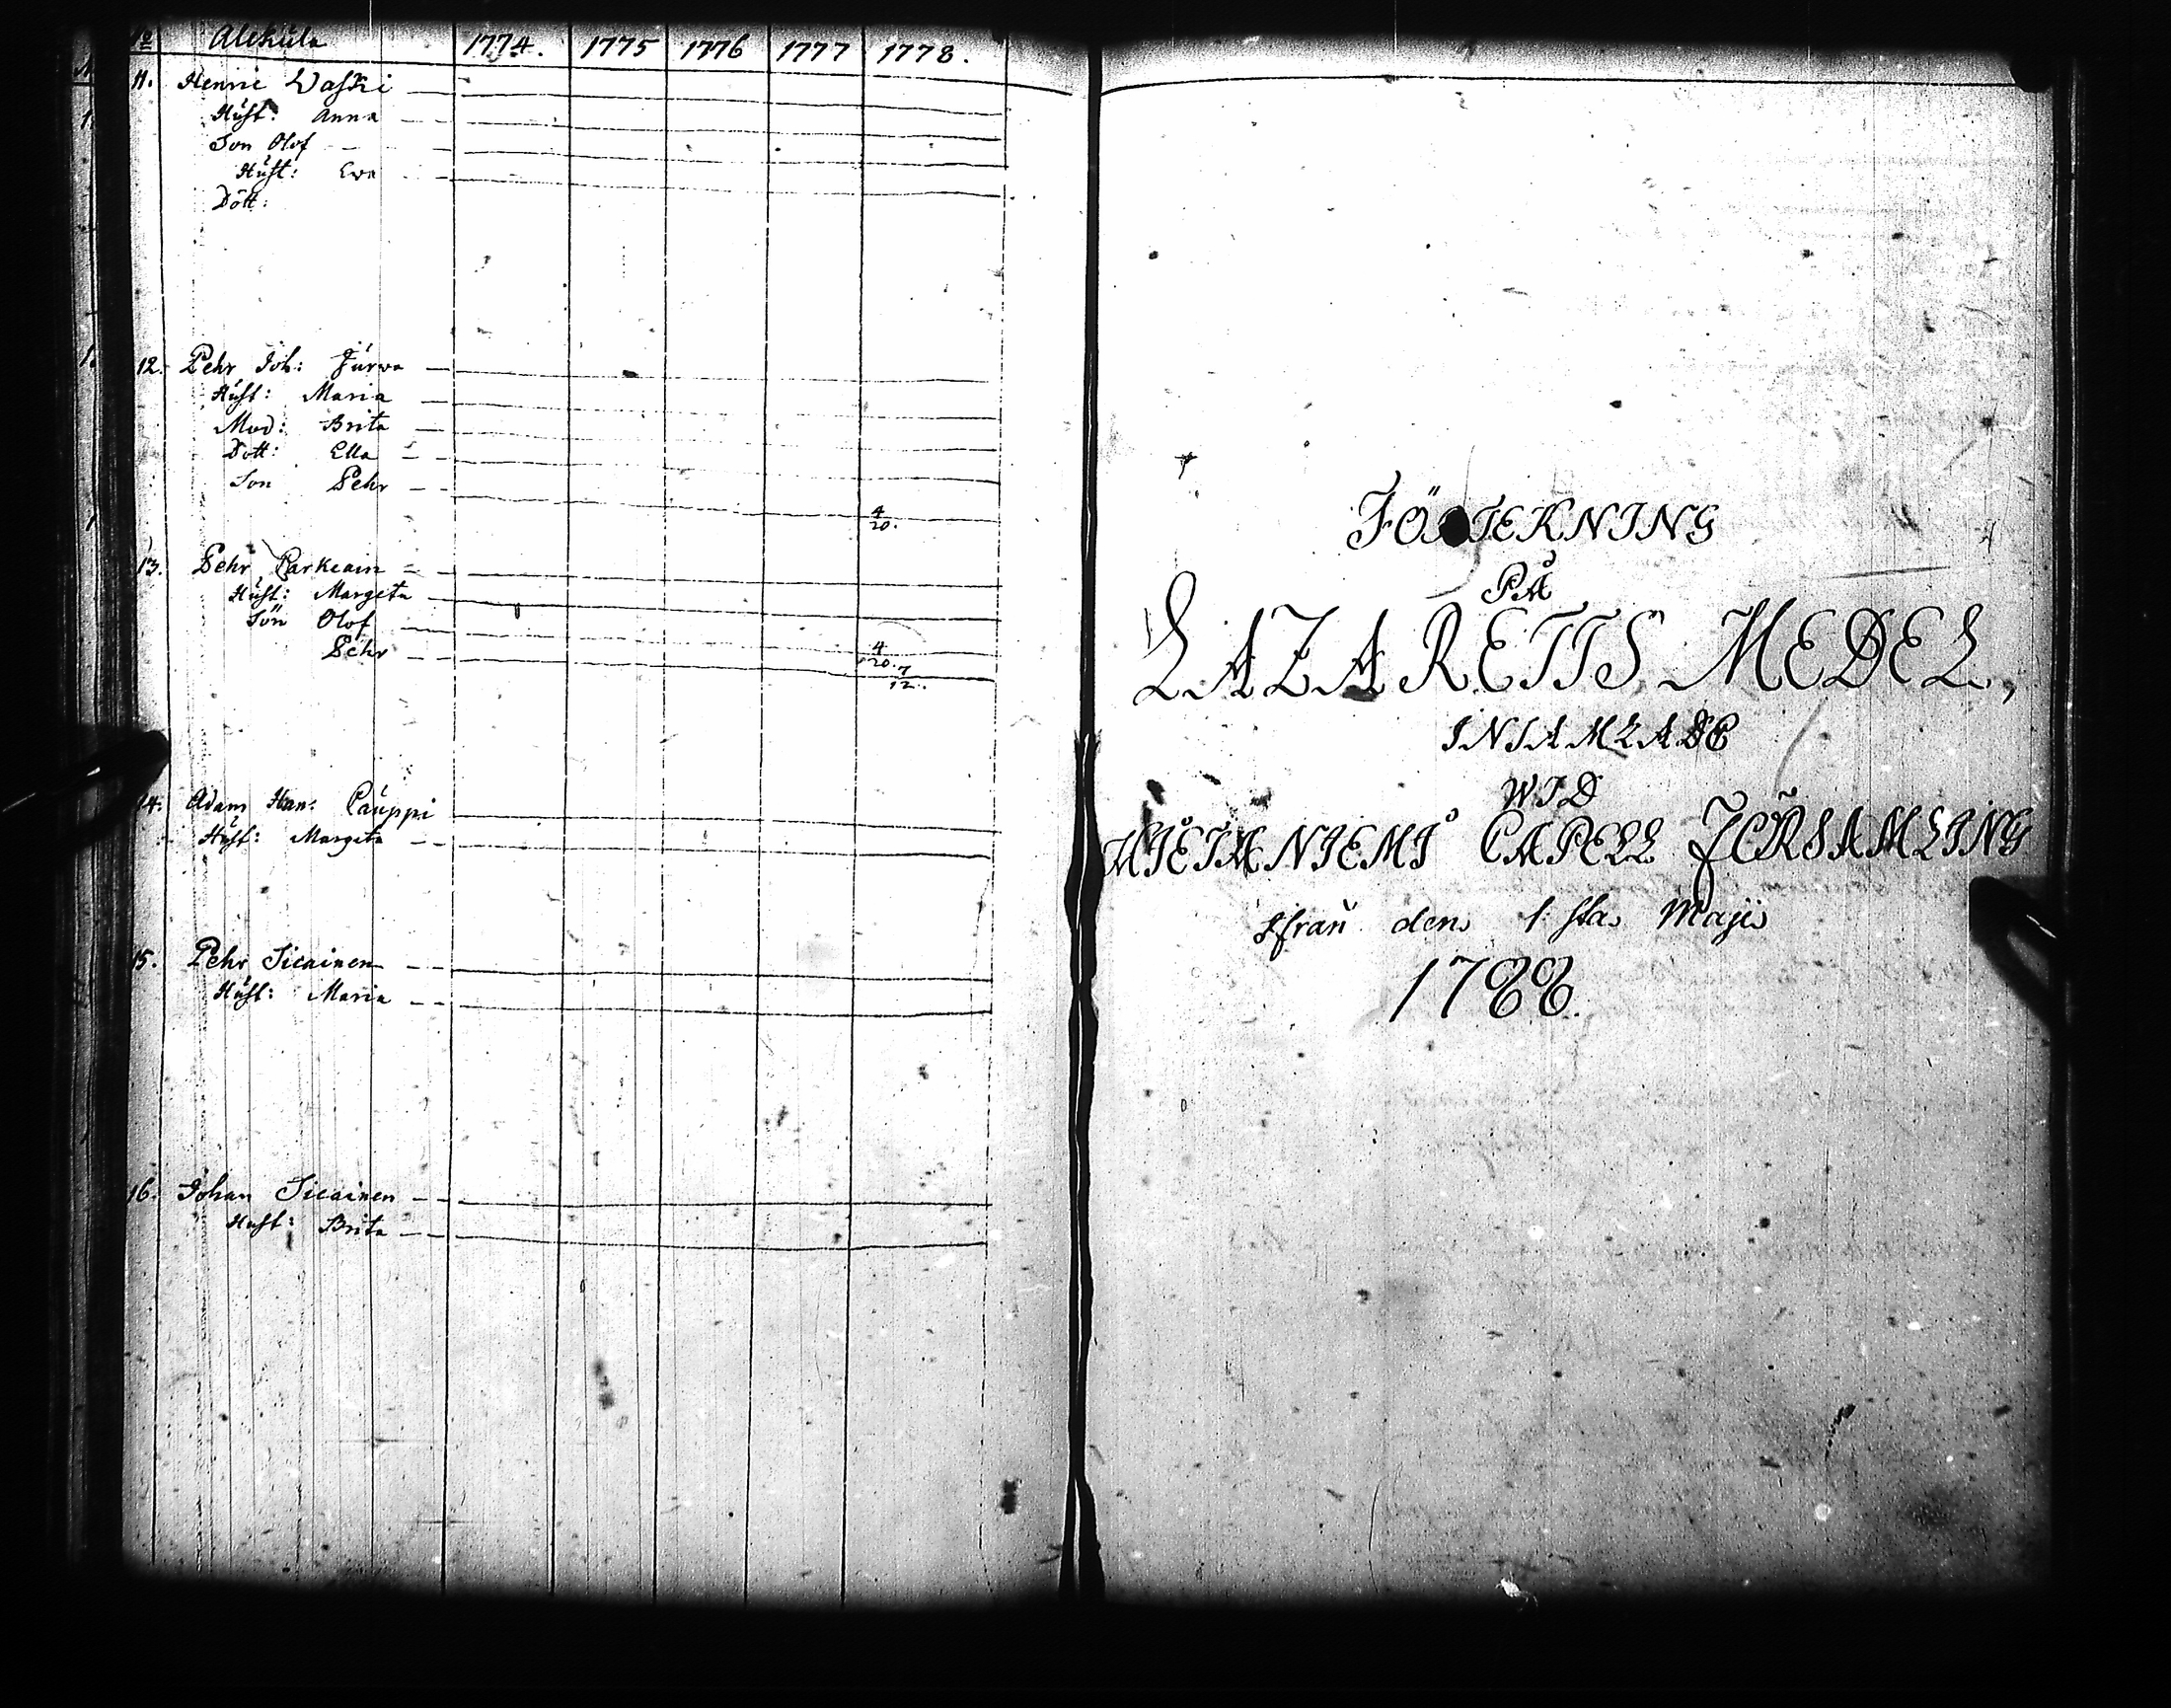 No Alckula 1774. 1775 1776 1777 1778.
11. Henric Waski
Hust: Anna
Son Olof
Hust: Ewa
Dött:
12. Pehr Joh: Jurwa
Hust: Maria
Mod: Brita
Dott: Ella
Son Pehr
4
20.
13. Pehr Parkeain
Hust: Margeta
Sön Olof
Pehr
4
20. 7
12.
14. Adam Han: Cauppi
Hust: Margeta
15. Pehr Sicainen
Hust: Maria
16. Johan Sicainen
Hust: Brita
FÖRTEKNING
PÅ
LAZARETTS MEDEL,
INSAMLADE
WID
HIETANIEMI CAPELL FÖRSAMLING
ifrån den 1:sta Maji
1788.